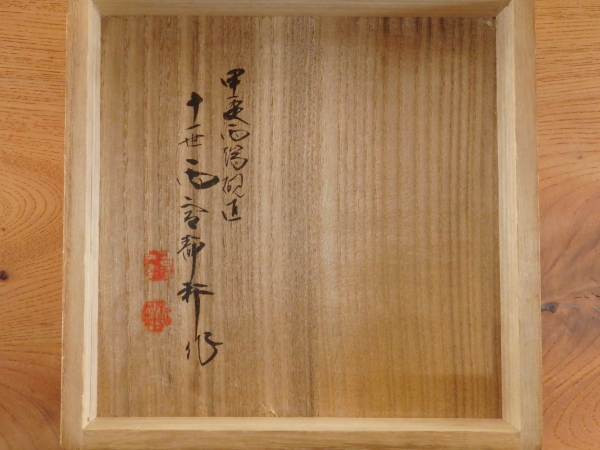 甲斐雨端硯匠
十一世 雨宮静軒作